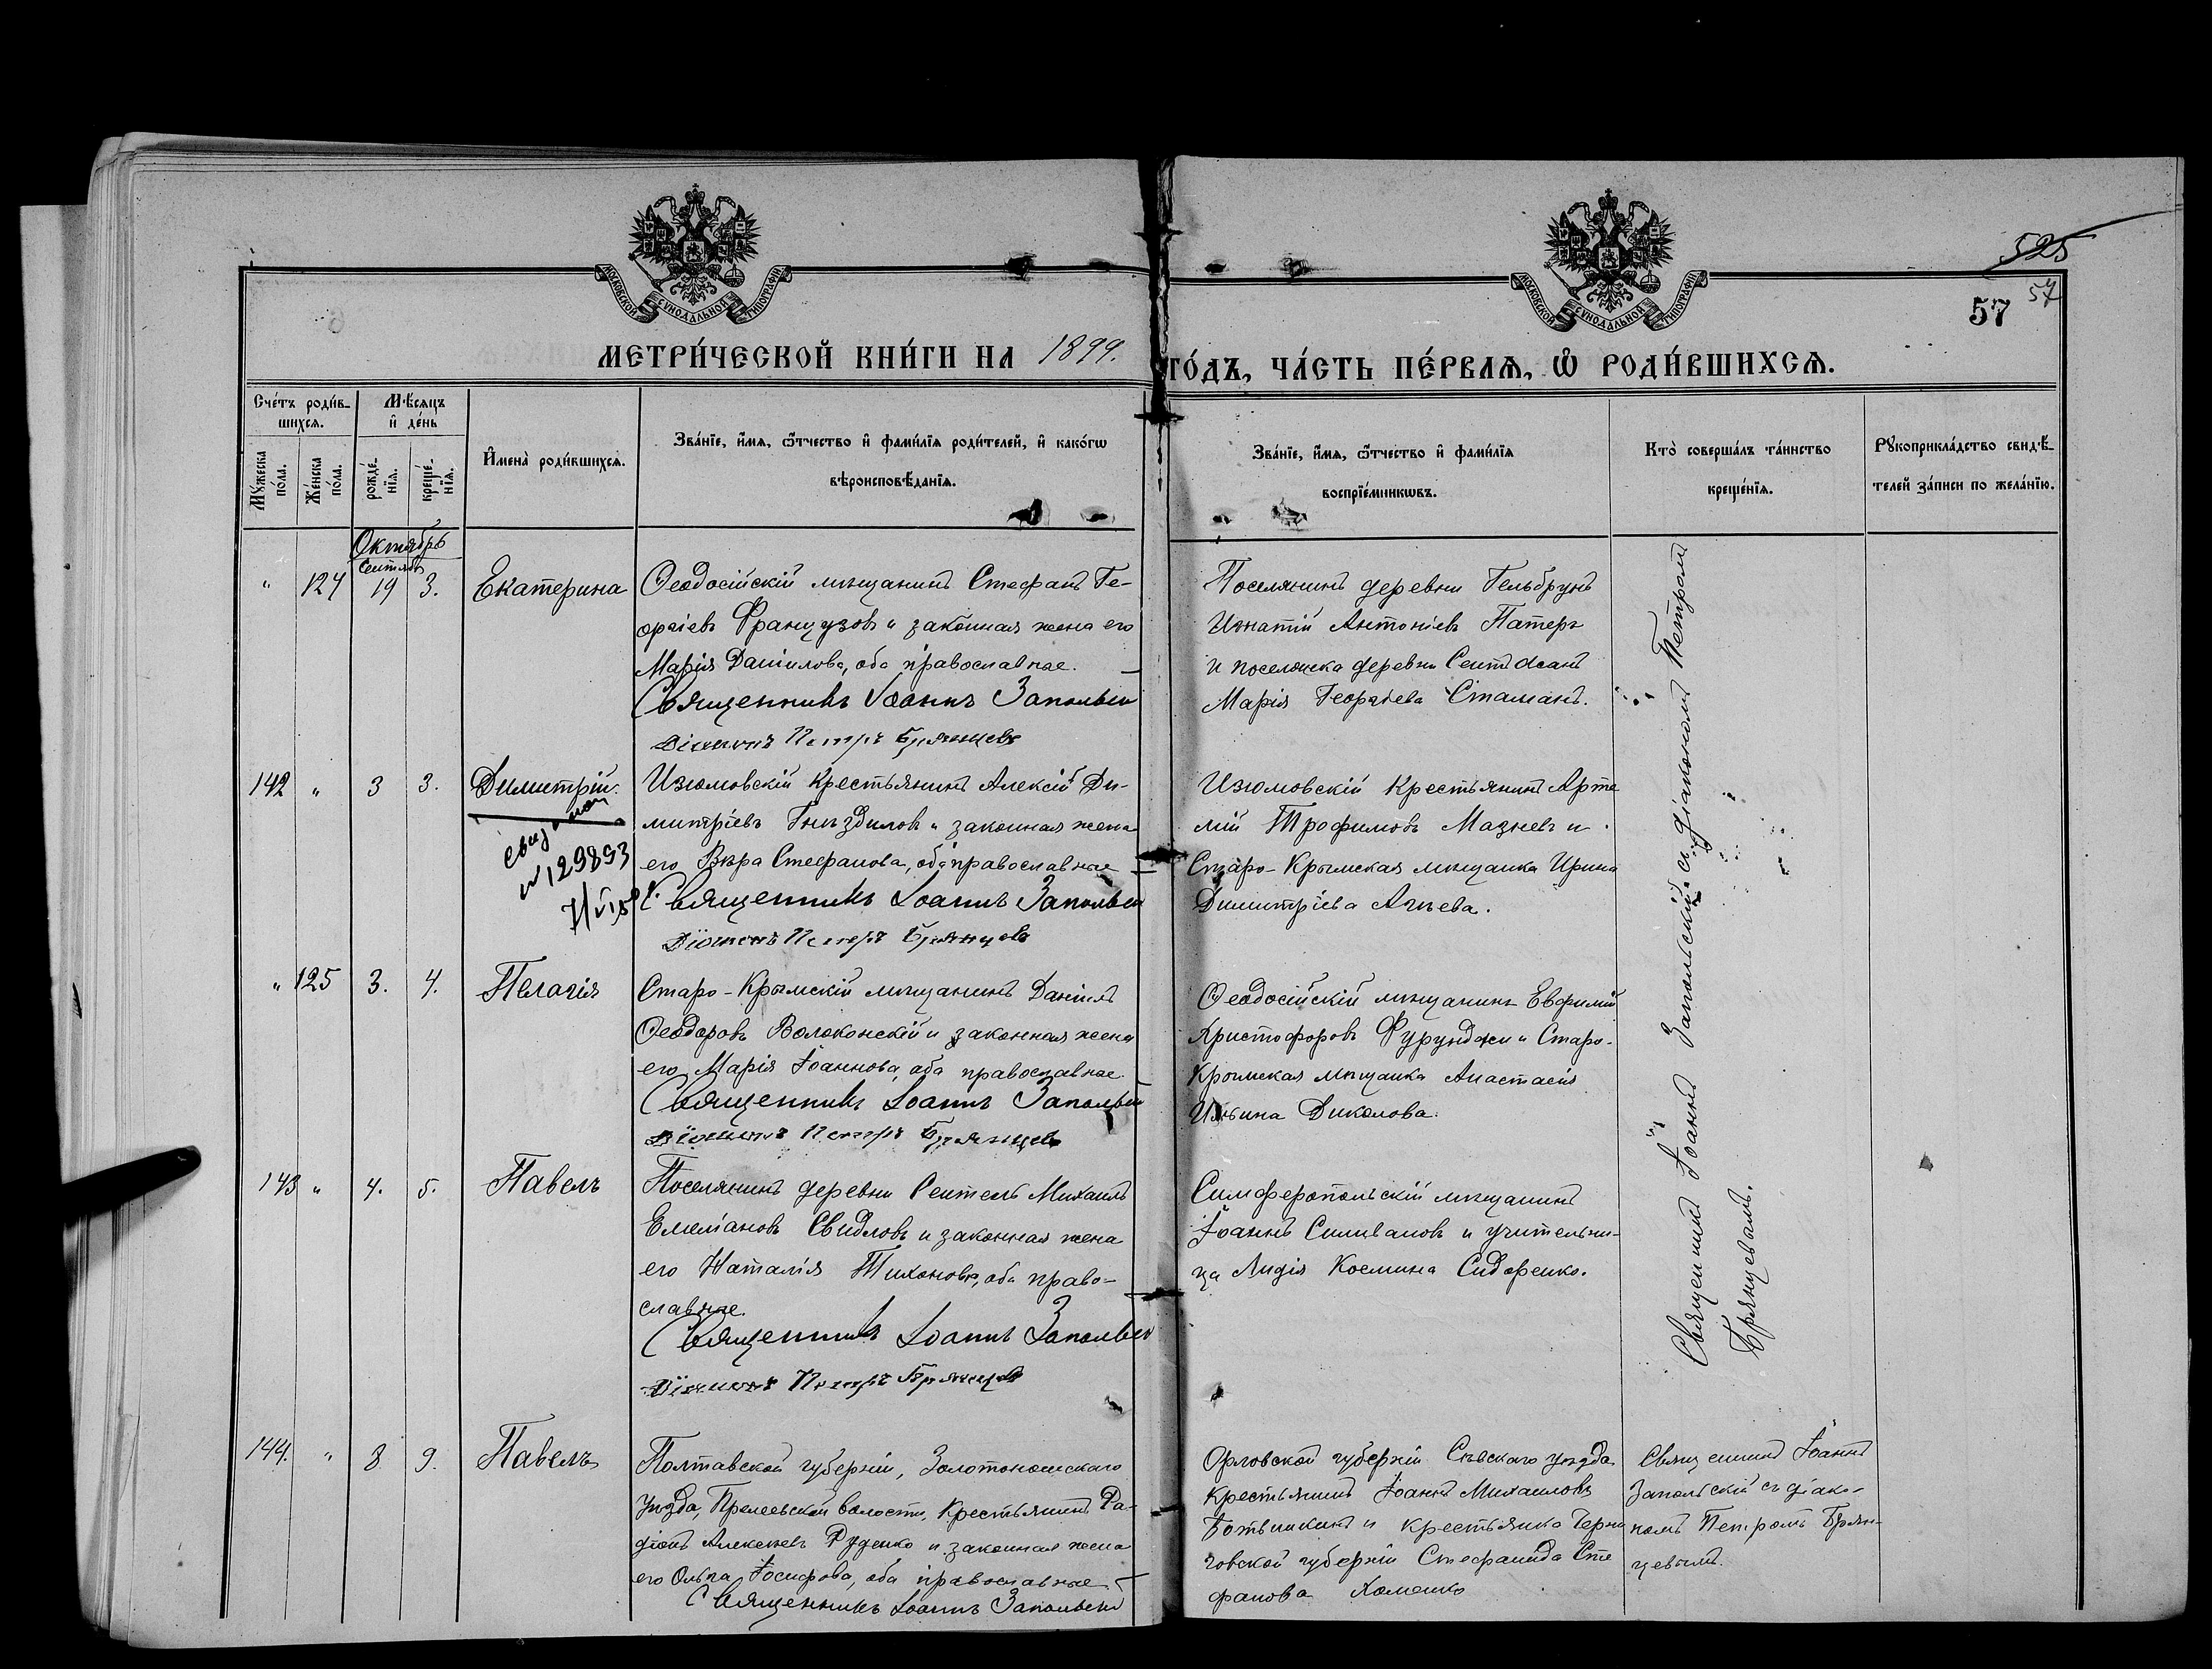 525
57
57
МОСКОВСКОЙ СѴНОДАЛЬНОЙ ТИПОГРАФІИ
МОСКОВСКОЙ СѴНОДАЛЬНОЙ ТИПОГРАФІИ
МЕТРИ́ЧЕСКОЙ КНИ́ГИ НА 1899.
ГО́ДЪ, ЧА́СТЬ ПЕ́РВАѦ, Ѡ҆ РОДИ́ВШИХСѦ.
Сче́тъ роди́в-
шихсѧ.
Мꙋ́жеска по́ла.
Же́нска по́ла.
Мѣ́сѧцъ
и҆ де́нь
рожде́-
нїѧ.
креще́-
нїѧ.
И҆мена̀ роди́вшихсѧ.
Зва́нїе, и҆́мѧ, ѻ҆́тчество и҆ фами́лїѧ роди́телей, и҆ како́гѡ
вѣроисповѣ́данїѧ.
Зва́нїе, и҆́мѧ, ѻ҆́тчество и҆ фами́лїѧ
воспрїе́мникѡвъ.
Кто̀ соверша́лъ та́инство
креще́нїѧ.
Рꙋкоприкла́дство свидѣ́-
телей за́писи по жела́нїю.
Октябрь
Сентябрь
" 124 19 3. Екатерина
Ѳеодосійскій мѣщанинъ Стефанъ Ге-
оргіевъ Французовъ и законная жена его
Марія Даніилова, оба православные.
Священникъ Іоаннъ Запольскій
Діаконъ Петръ Брянцевъ
Поселянинъ деревни Гельбрунъ
Игнатій Антоніевъ Патеръ
и поселянка деревни
Марія Георгіева Стаманъ.
142 " 3 3. Димитрій.
№ 129893
Изюмовскій крестьянинъ Алексій Ди-
митріевъ Гнѣздиловъ и законная жена
его Вѣра Стефанова, оба православные
Священникъ Іоаннъ Запольскій
Діаконъ Петръ Брянцевъ
Изюмовскій крестьянинъ Арте
мій Трофимовъ Мазневъ и
Старо-Крымская мѣщанка Ирина
Димитріева
" 125 3. 4. Пелагія
Старо-Крымскій мѣщанинъ Даніилъ
Ѳеодоровъ Волоконскій и законная жена
его Марія Іоаннова, оба православные
Священникъ Іоаннъ Запольскій
Діаконъ Петръ Брянцевъ
Ѳеодосійскій мѣщанинъ Евфимій
Христофоровъ Фурунджи и Старо-
Крымская мѣщанка Анастасія
Ильина Диколова.
143 " 4. 5. Павелъ
Поселянинъ деревни Сеитель Михаилъ
Емеліановъ Свидловъ и законная жена
его Наталія Тихонова, оба право-
славные.
Священникъ Іоаннъ Запольскій
Діаконъ Петръ Брянцевъ
Симферопольскій мѣщанинъ
Іоаннъ Силивановъ и учительни-
ца Лидія Космина Сидоренко.
Священникъ Іоаннъ Запольскій съ діакономъ Петромъ
Брянцевымъ.
144. " 8 9. Павелъ
Полтавской губерніи, Золотоношскаго
уѣзда, волости, крестьянинъ Ра-
діонъ Алексіевъ Руденко и законная жена
его Ольга Іосифова, оба православные
Священникъ Іоаннъ Запольскій
Орловской губерніи Сѣвскаго уѣзда
крестьянинъ Іоаннъ Михаиловъ
Ботвинкинъ и крестьянка Черни
говской губерніи Стефанида Сте
фанова Хоменко
Священникъ Іоаннъ
Запольскій съ діако-
номъ Петромъ Брян-
цевымъ.